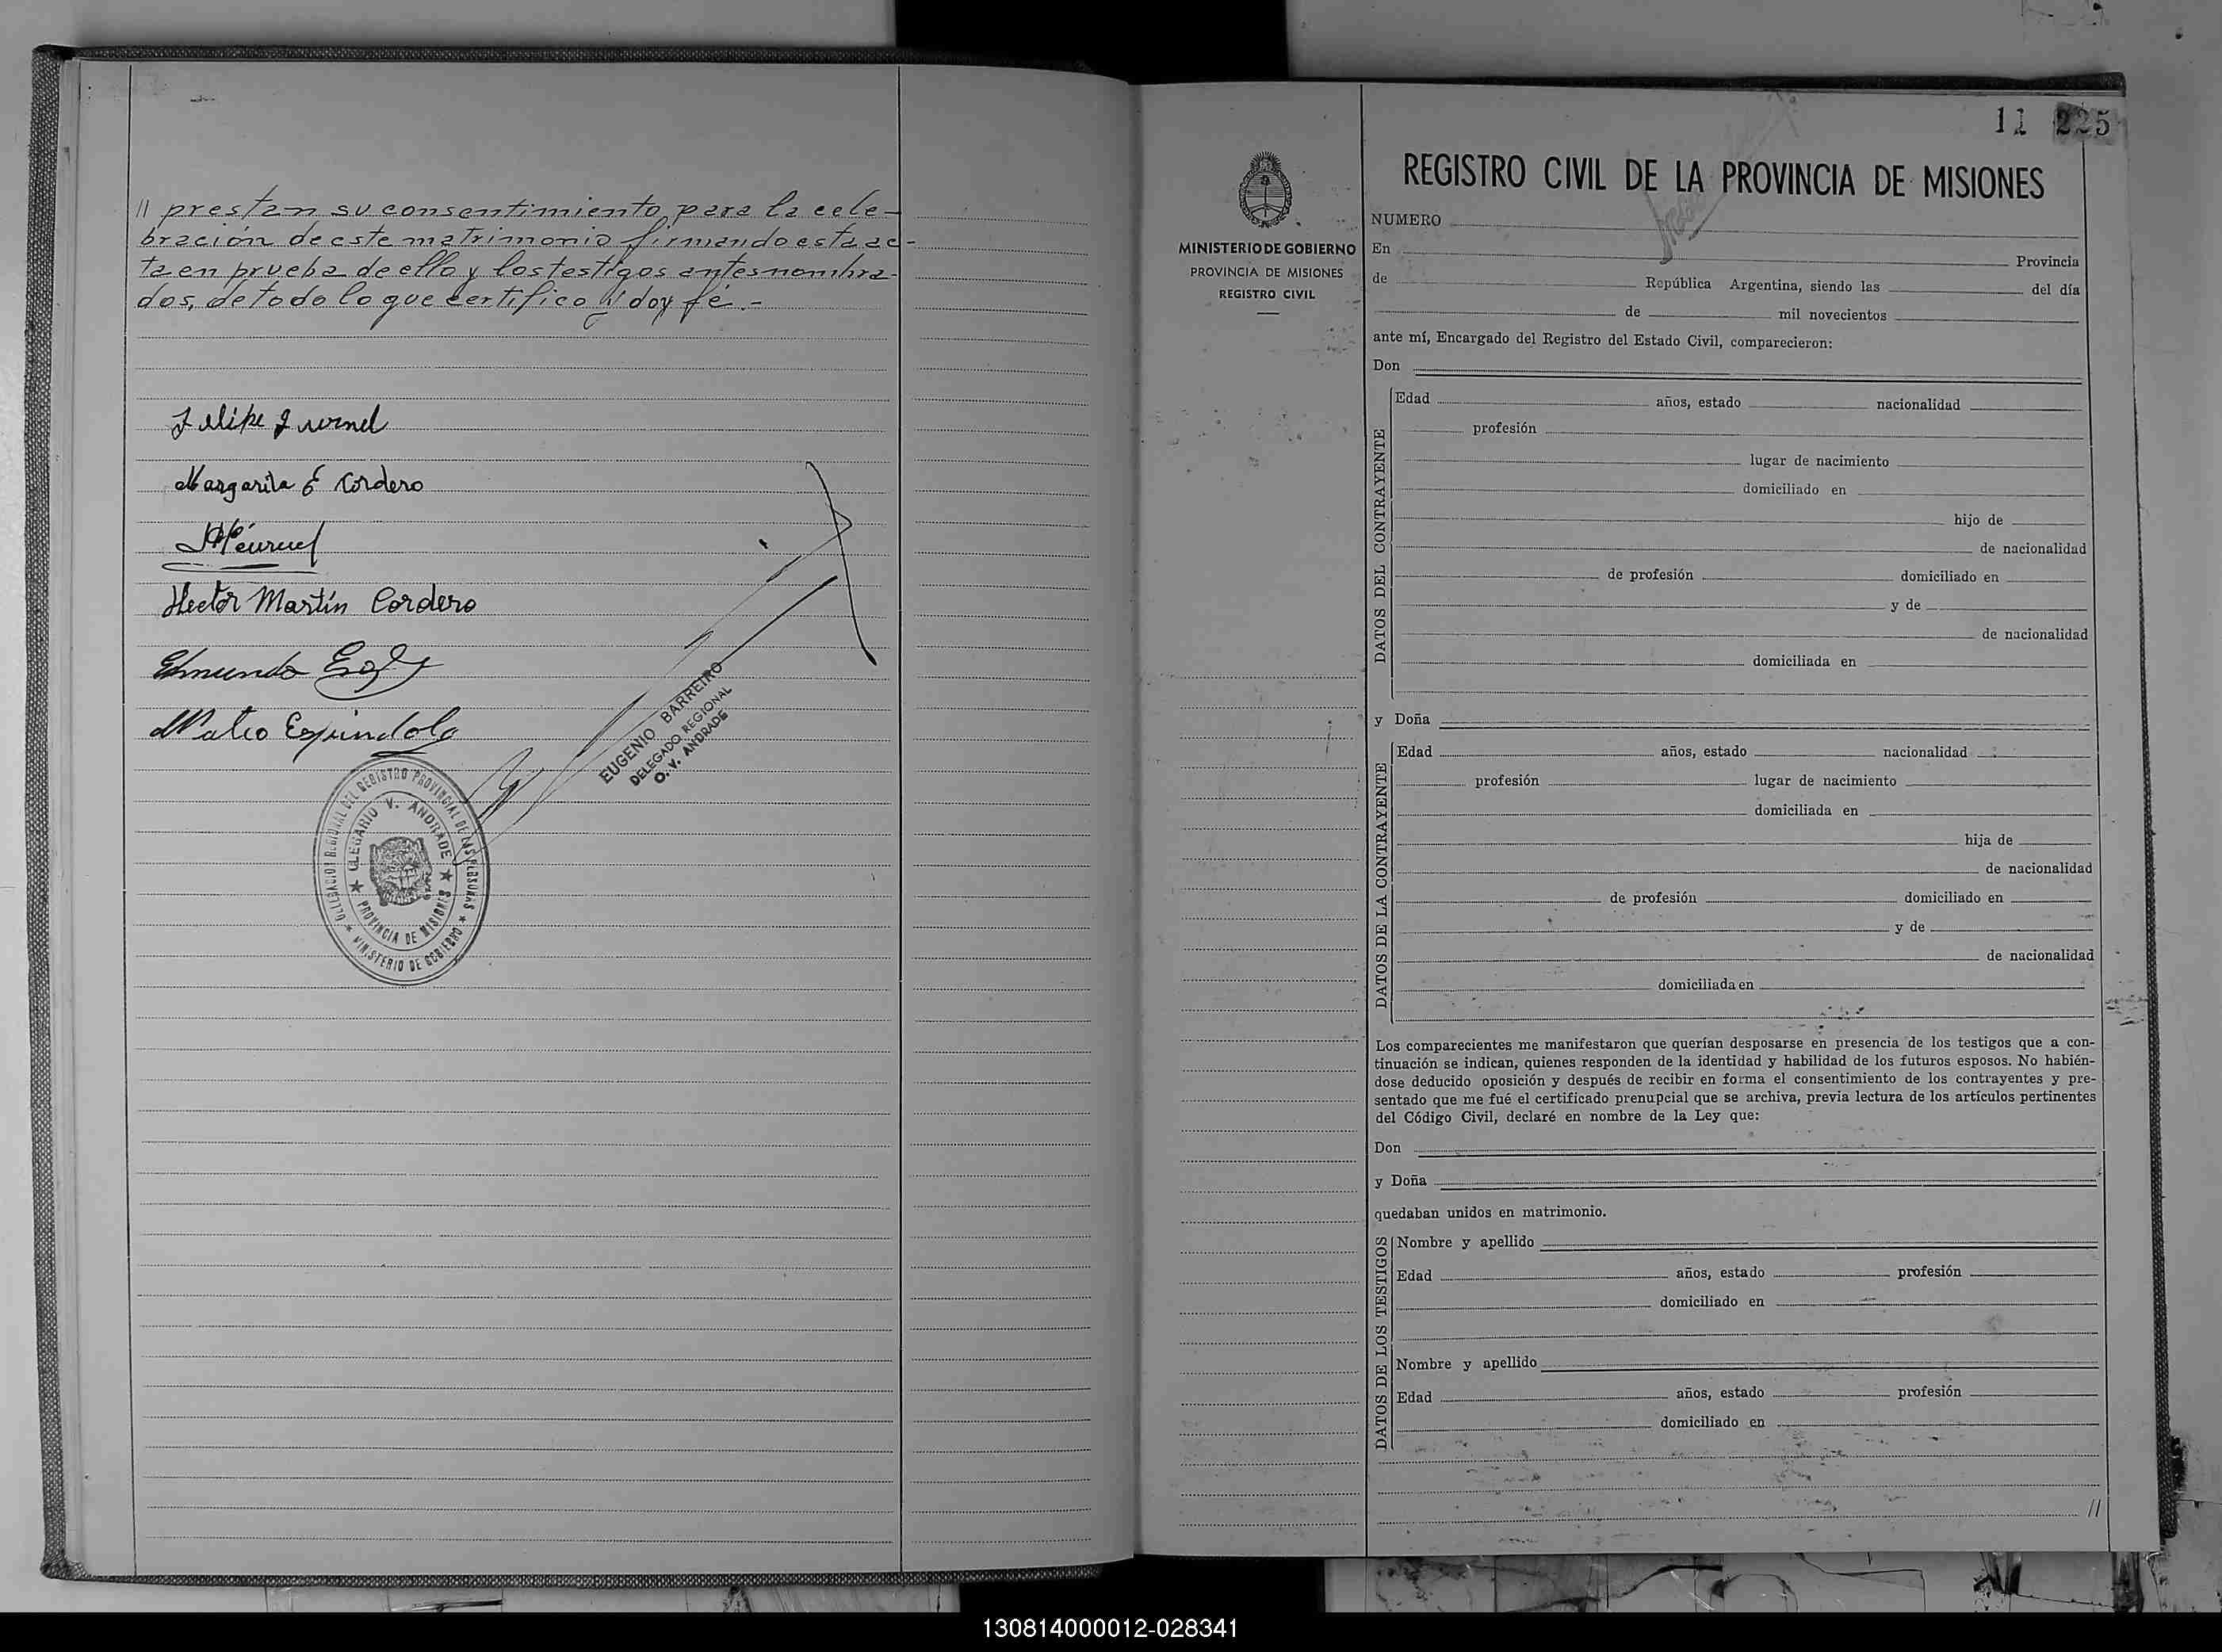 // prestan su consentimiento para la cele-
bración de este matrimonio firmando esta ac-
ta en prueba de ello y los testigos antes nombra-
dos, de todo lo que certifico y doy fé.-
Margarita E Cordero
Hector Martín Cordero
Edmundo
Mateo Espindola
EUGENIO BARREIRO
DELEGADO REGIONAL
O. V. ANDRADE
DELEGACION REGIONAL DEL REGISTRO PROVINCIAL DE LAS PERSONAS
MINISTERIO DE GOBIERNO
OLEGARIO V. ANDRADE
PROVINCIA DE MISIONES
11 225
MINISTERIO DE GOBIERNO
PROVINCIA DE MISIONES
REGISTRO CIVIL
REGISTRO CIVIL DE LA PROVINCIA DE MISIONES
NUMERO
En Provincia
de República Argentina, siendo las del día
de mil novecientos
ante mí, Encargado del Registro del Estado Civil, comparecieron:
Don
DATOS DEL CONTRAYENTE
Edad años, estado nacionalidad
profesión
lugar de nacimiento
domiciliado en
hijo de
de nacionalidad
de profesión domiciliado en
y de
de nacionalidad
domiciliada en
y Doña
DATOS DE LA CONTRAYENTE
Edad años, estado nacionalidad
profesión lugar de nacimiento
domiciliada en
hija de
de nacionalidad
de profesión domiciliado en
y de
de nacionalidad
domiciliada en
Los comparecientes me manifestaron que querían desposarse en presencia de los testigos que a con-
tinuación se indican, quienes responden de la identidad y habilidad de los futuros esposos. No habién-
dose deducido oposición y después de recibir en forma el consentimiento de los contrayentes y pre-
sentado que me fué el certificado prenupcial que se archiva, previa lectura de los artículos pertinentes
del Código Civil, declaré en nombre de la Ley que:
Don
y Doña
quedaban unidos en matrimonio.
DATOS DE LOS TESTIGOS
Nombre y apellido
Edad años, estado profesión
domiciliado en
Nombre y apellido
Edad años, estado profesión
domiciliado en
//
130814000012-028341